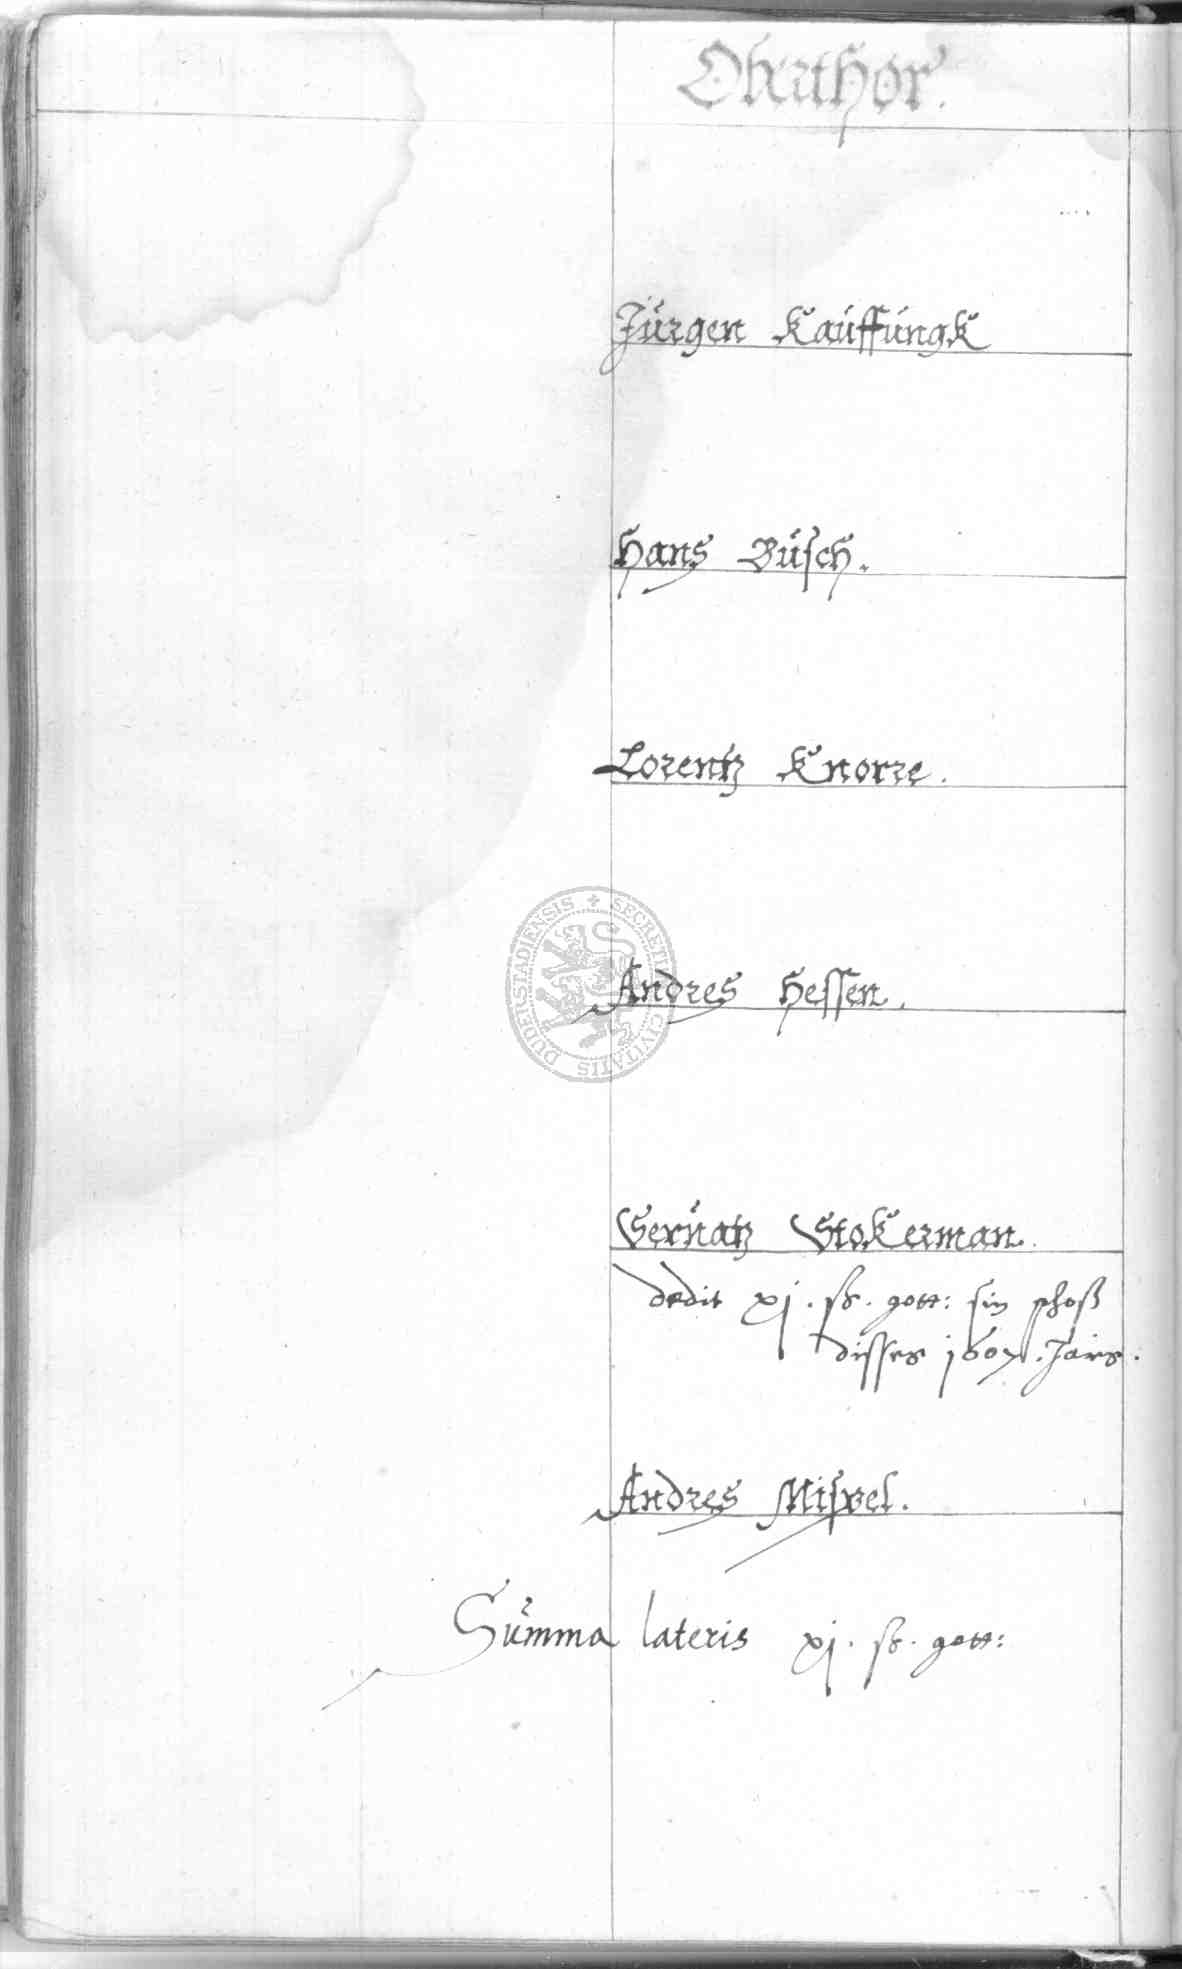 Oberthor.
Jürgen Kauffungk
Hans Busch.
Lorentz Knorre.
Andres Hessen.
SECRETI CIVITATIS DUDERSTADIENSIS
Servatz Stokerman.
dedit xj. ß. gott: sin schoß
disses 1607. Jairs.
Andres Mispel.
Summa lateris xj. ß. gott: